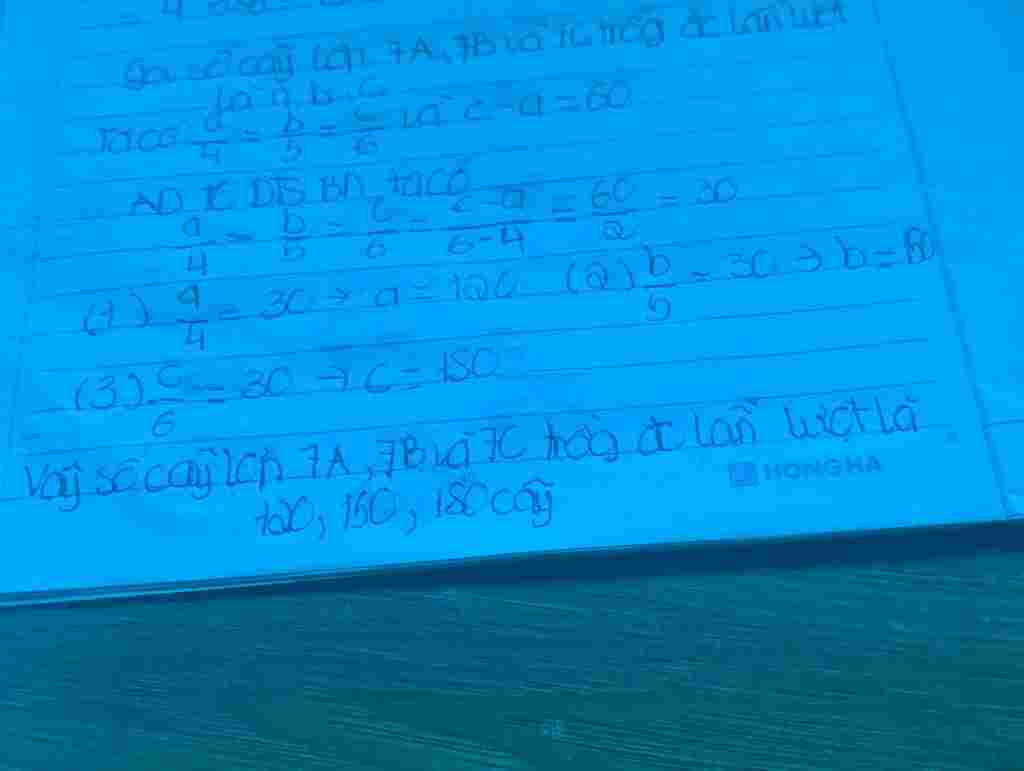 Gọi số cây lớp 7A, 7B và 7C trồg đc lần lượt
là a, b, c
Ta có a/4 = b/5 = c/6 và c - a = 60
AD t/c DTSBN, ta có
a/4 = b/5 = c/6 = c-a/6-4 = 60/2 = 30
(1) a/4 = 30 → a = 120 (2) b/5 = 30 → b = 150
(3) c/6 = 30 → c = 180
Vậy số cây lớp 7A, 7B và 7C trồg đc lần lượt là
120, 150, 180 cây
HONG HA